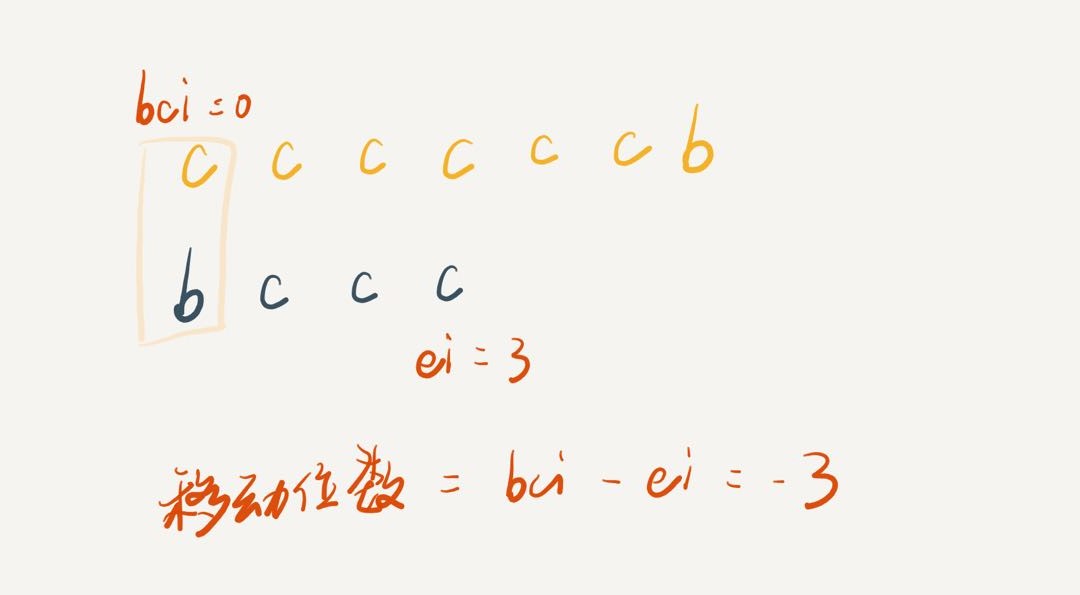 bci = 0
c c c c c c b
b c c c
ei = 3
移动位数 = bci - ei = -3